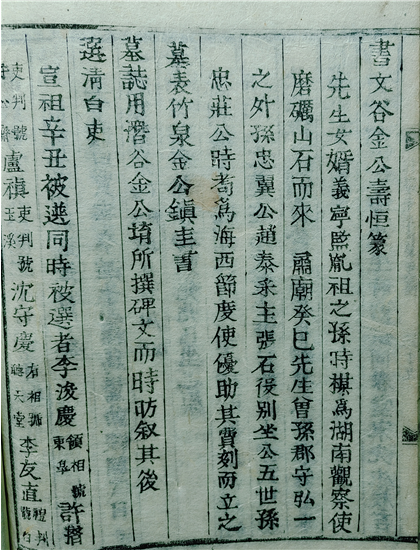 書文谷金公壽恒篆
先生女婿義寧監胤祖之孫時楳爲湖南觀察使
磨礪山石而來 肅廟癸巳先生曾孫郡守弘一
之外孫忠翼公趙泰采主張石役別坐公五世孫
忠莊公時耉爲海西節度使優助其費刻而立之
墓表竹泉金公鎭圭書
墓誌用潛谷金公堉所撰碑文而時昉叙其後
選清白吏
宣祖辛丑被選同時被選者李浚慶領相號東皐許
盧禛吏判號玉溪沈守慶右相號聽天堂李友直